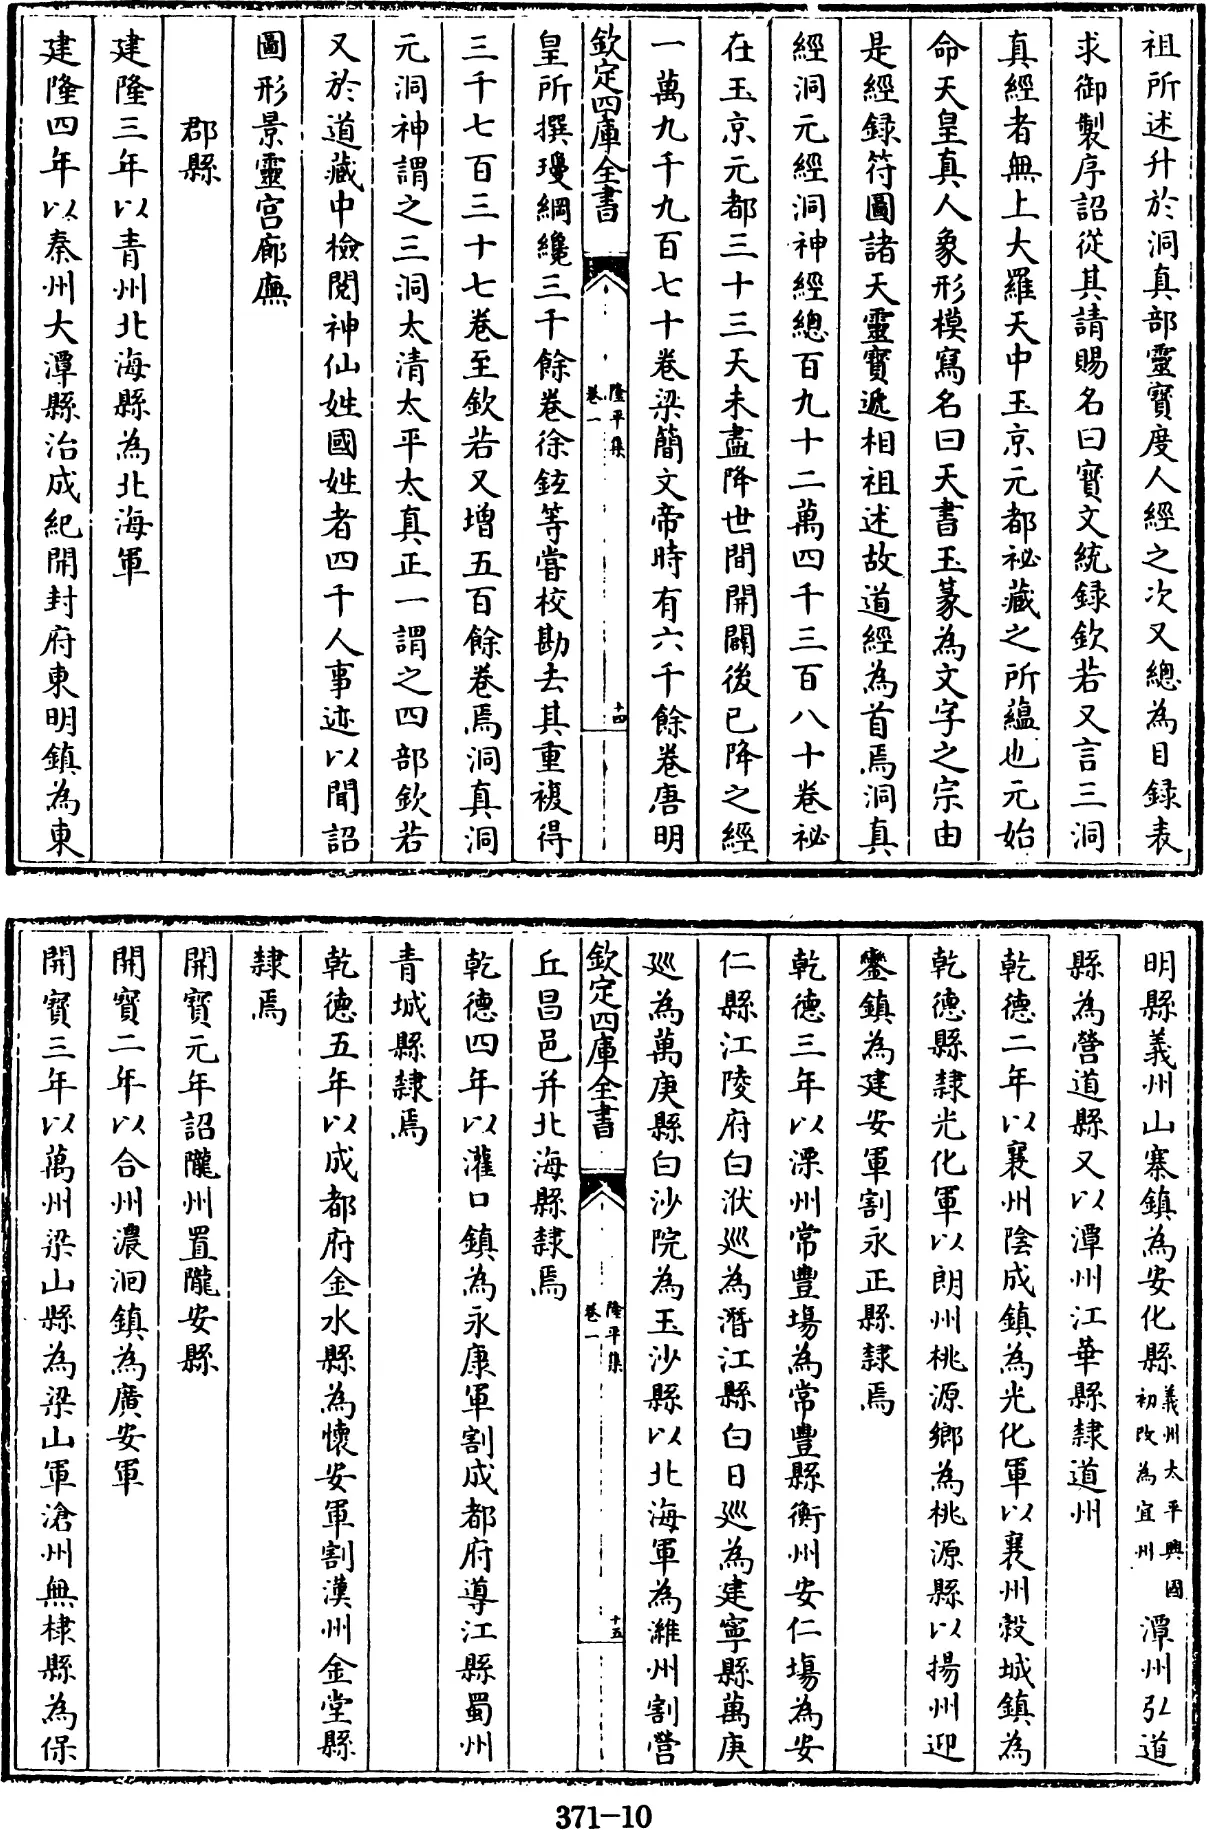 祖所述升於洞真部靈寳度人經之次又總為目録表
求御製序詔從其請賜名曰寳文統録欽若又言三洞
真經者無上大羅天中玉京元都祕藏之所藴也元始
命天皇真人象形模寫名曰天書玉篆為文字之宗由
是經録符圖諸天靈寳遞相祖述故道經為首焉洞真
經洞元經洞神經總百九十二萬四千三百八十卷祕
在玉京元都三十三天未盡降世間開闢後已降之經
一萬九千九百七十卷梁簡文帝時有六千餘卷唐明
欽定四庫全書
隆平集
卷一
十四
皇所撰瓊綱纔三千餘卷徐鉉等嘗校勘去其重複得
三千七百三十七卷至欽若又增五百餘卷焉洞真洞
元洞神謂之三洞太清太平太真正一謂之四部欽若
又於道藏中檢閱神仙姓國姓者四千人事迹以聞詔
圖形景靈宫廊廡
郡縣
建隆三年以青州北海縣為北海軍
建隆四年以秦州大潭縣治成紀開封府東明鎮為東
明縣義州山寨鎮為安化縣義州太平興國初改為宜州潭州弘道
縣為營道縣又以潭州江華縣隸道州
乾德二年以襄州陰成鎮為光化軍以襄州穀城鎮為
乾德縣隸光化軍以朗州桃源鄉為桃源縣以揚州迎
鑾鎮為建安軍割永正縣隸焉
乾德三年以溧州常豐塲為常豐縣衡州安仁塲為安
仁縣江陵府白洑廵為潛江縣白日廵為建寧縣萬庚
廵為萬庚縣白沙院為玉沙縣以北海軍為濰州割營
欽定四庫全書
隆平集
卷一
十五
丘昌邑并北海縣隸焉
乾德四年以灌口鎮為永康軍割成都府導江縣蜀州
青城縣隸焉
乾德五年以成都府金水縣為懐安軍割漢州金堂縣
隸焉
開寳元年詔隴州置隴安縣
開寳二年以合州濃洄鎮為廣安軍
開寳三年以萬州梁山縣為梁山軍滄州無棣縣為保
371-10